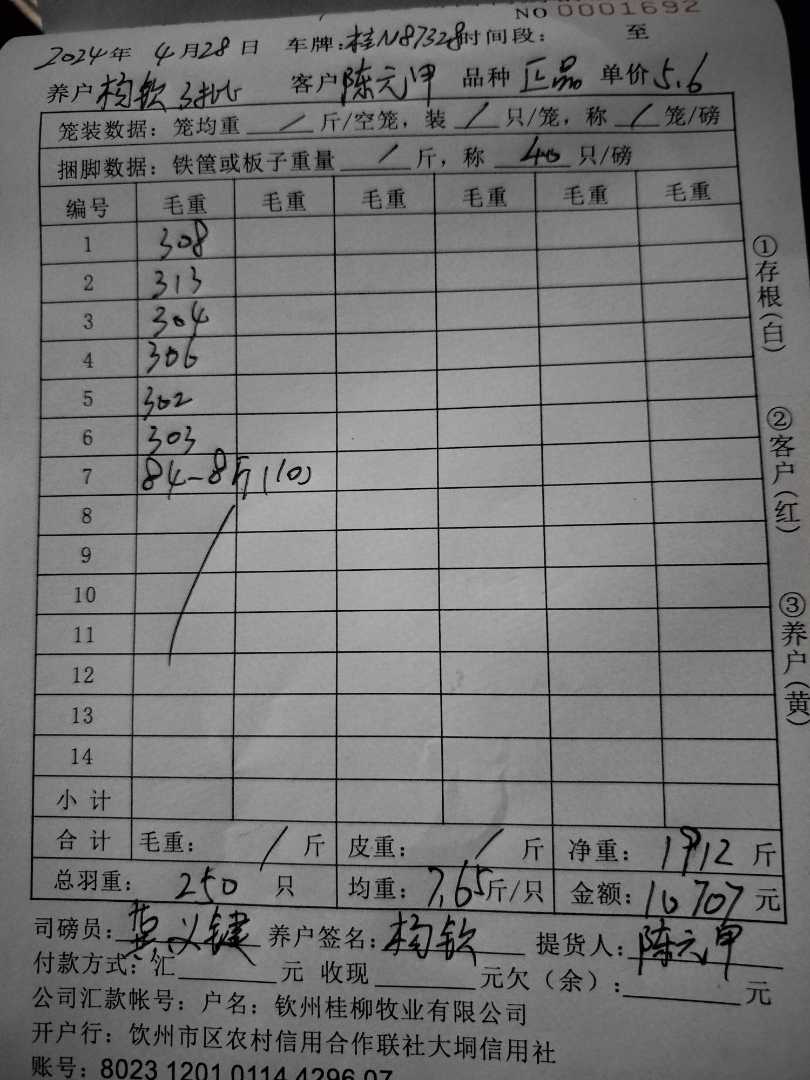 NO 0001692
2024年 4月28日 车牌:桂N87328时间段: 至
养户 杨钦 3批 客户陈元甲 品种 正品 单价5.6
笼装数据:笼均重 / 斤/空笼,装 / 只/笼,称 / 笼/磅
捆脚数据:铁筐或板子重量 / 斤,称 40 只/磅
编号 毛重 毛重 毛重 毛重 毛重 毛重
1 308
2 313
3 304
4 306
5 302
6 303
7 84-8斤(10)
8
9
10
11
12
13
14
小计
合计 毛重: / 斤 皮重: / 斤 净重: 1912 斤
总羽重: 250 只 均重: 7.65斤/只 金额: 10707 元
司磅员: 黄义键 养户签名: 杨钦 提货人: 陈元甲
付款方式:汇 元 收现 元欠(余): 元
公司汇款帐号:户名:钦州桂柳牧业有限公司
开户行:饮州市区农村信用合作联社大垌信用社
账号:8023 1201 0114 4296 07
①存根(白)
②客户(红)
③养户(黄)